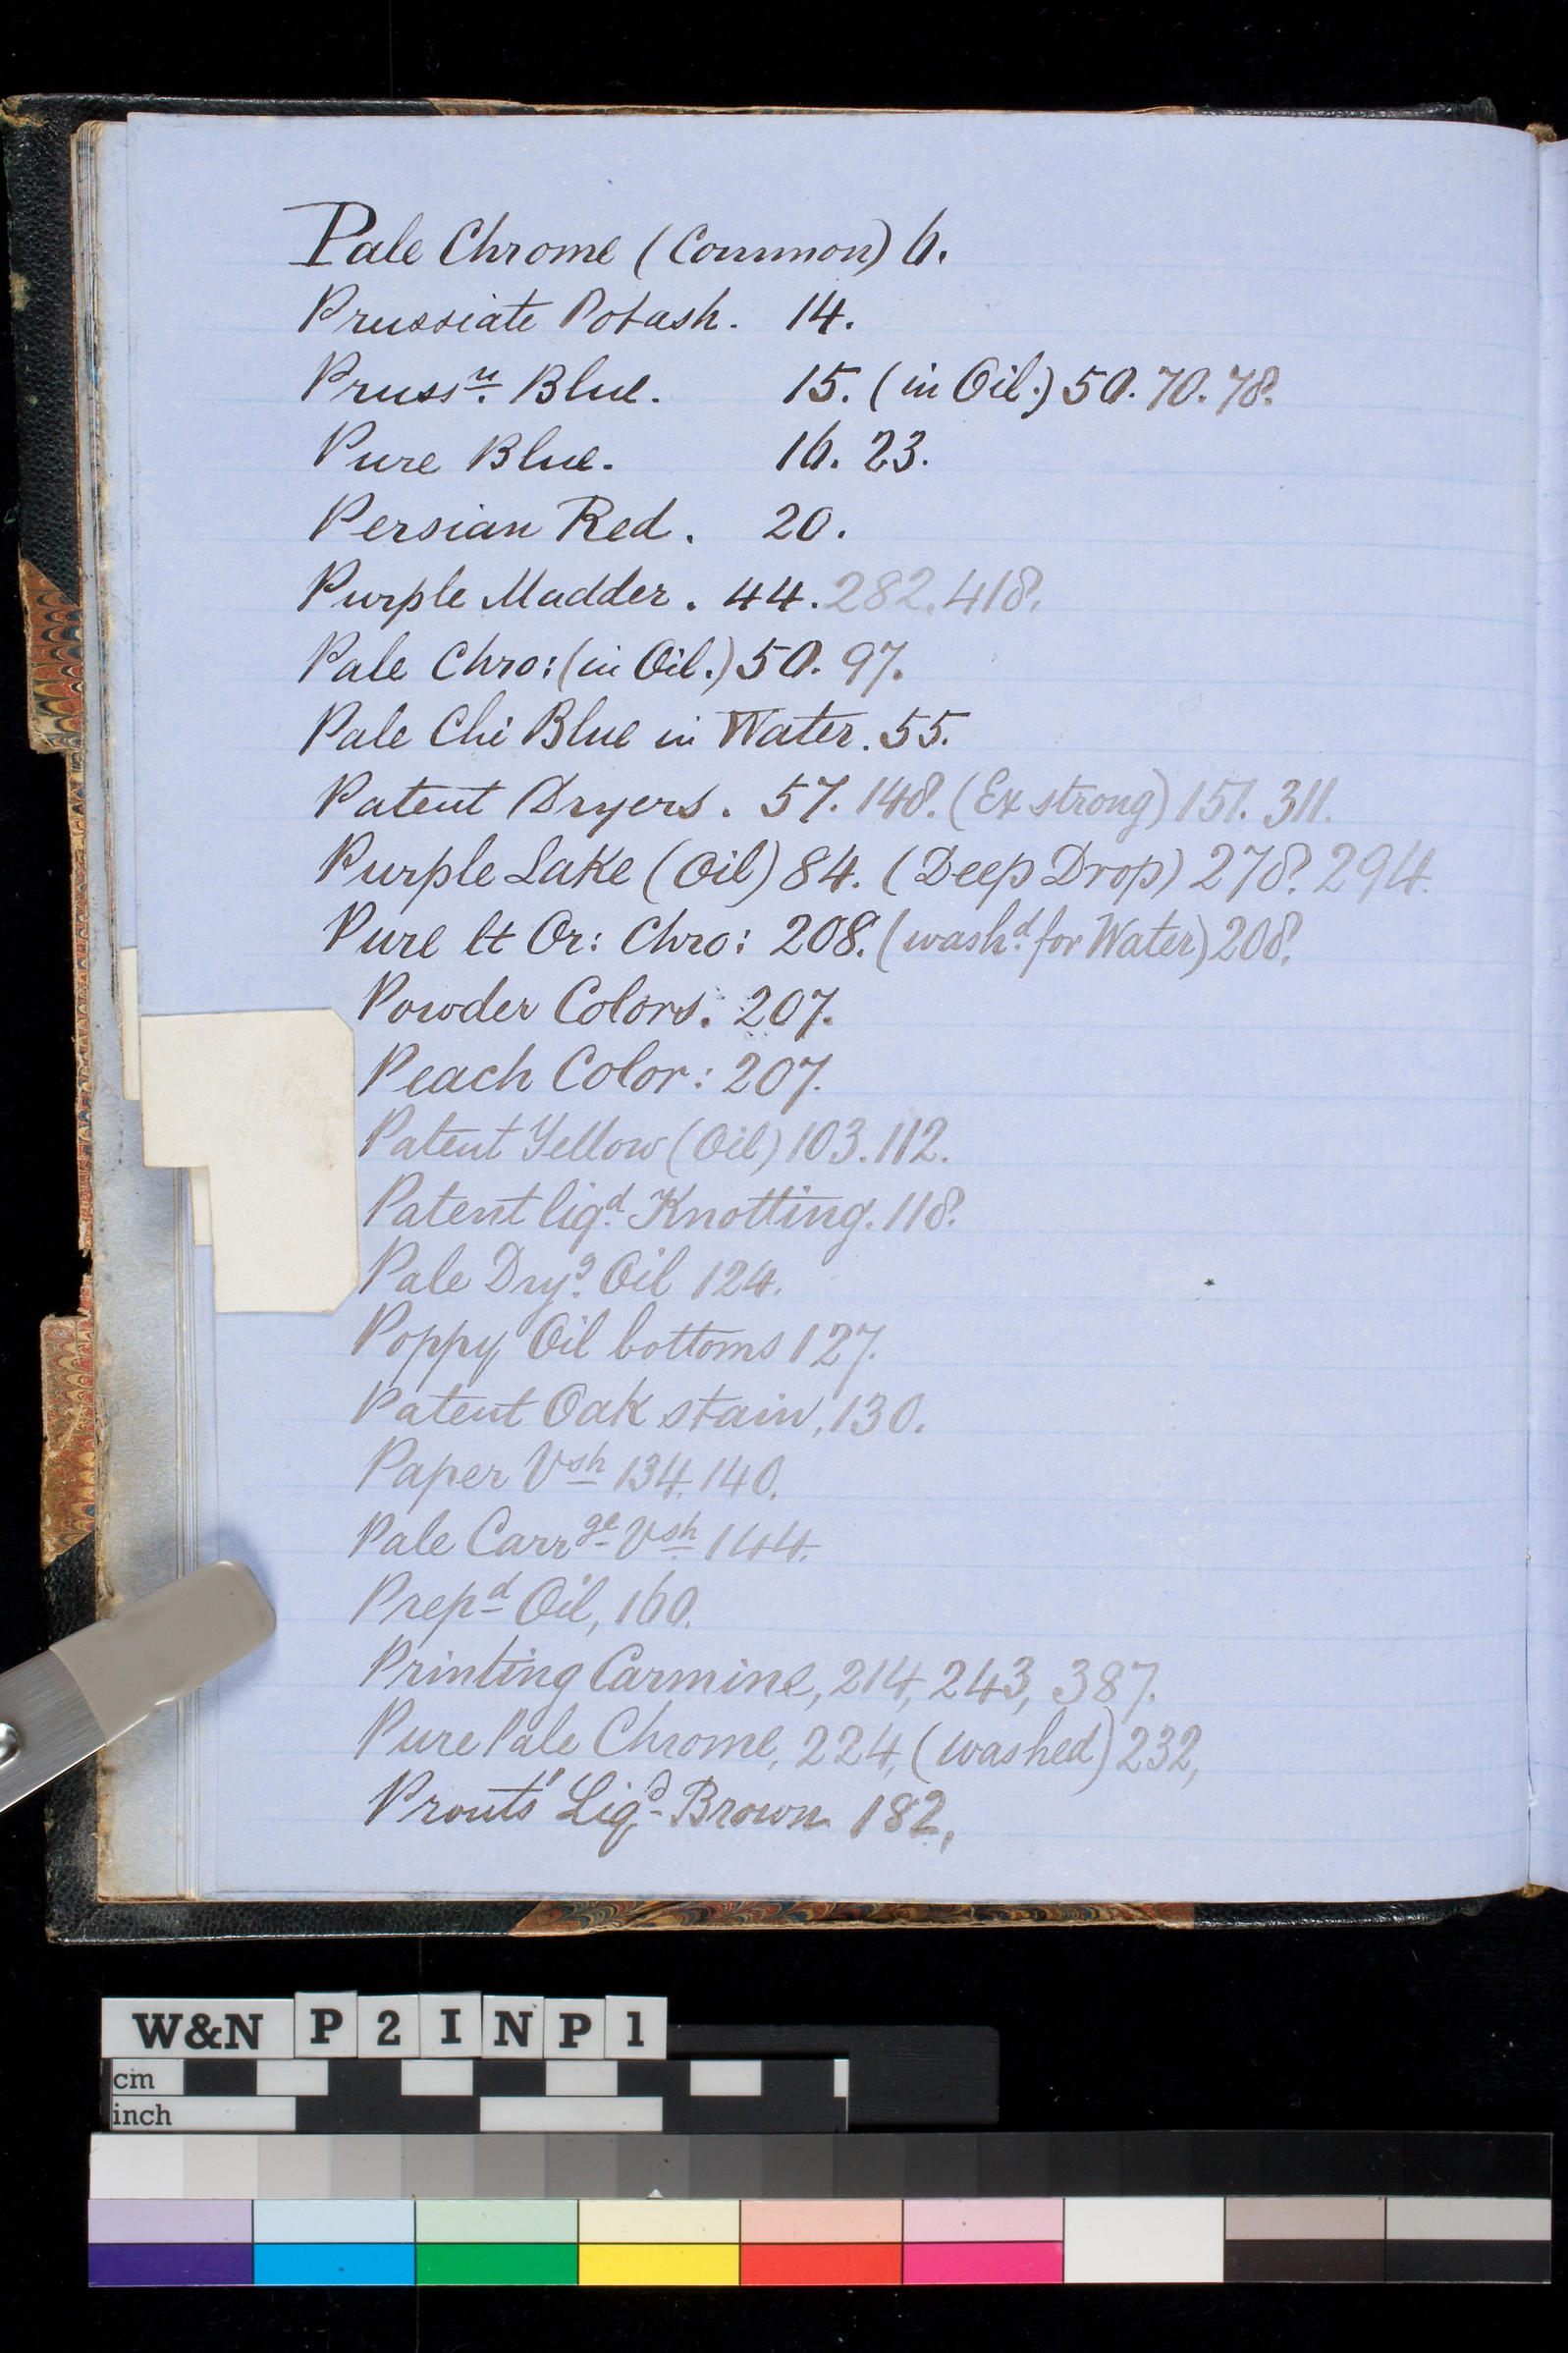 Pale Chrome (Common) 6.
Prussiate Potash. 14.
Prussn. Blue. 15. (in Oil.) 50. 70. 78.
Pure Blue. 16. 23.
Persian Red. 20.
Purple Madder. 44. 282. 418.
Pale Chro: (in Oil.) 50. 97.
Pale Chi Blue in Water. 55.
Patent Dryers. 57. 148. (Ex strong) 151. 311.
Purple Lake (Oil) 84. (Deep Drop) 278. 294.
Pure lt Or: Chro: 208. (washd. for Water) 208.
Powder Colors: 207.
Peach Color: 207.
Patent Yellow (Oil) 103. 112.
Patent liqd. Knotting. 118.
Pale Dryg. Oil 124.
Poppy Oil bottoms 127.
Patent Oak stain, 130.
Paper Vsh 134. 140.
Pale Carrge Vsh 144.
Prepd Oil, 160.
Printing Carmine, 214, 243, 387.
Pure Pale Chrome, 224, (washed) 232,
Prouts' Liqd Brown 182,
W&N P2INP1
cm
inch